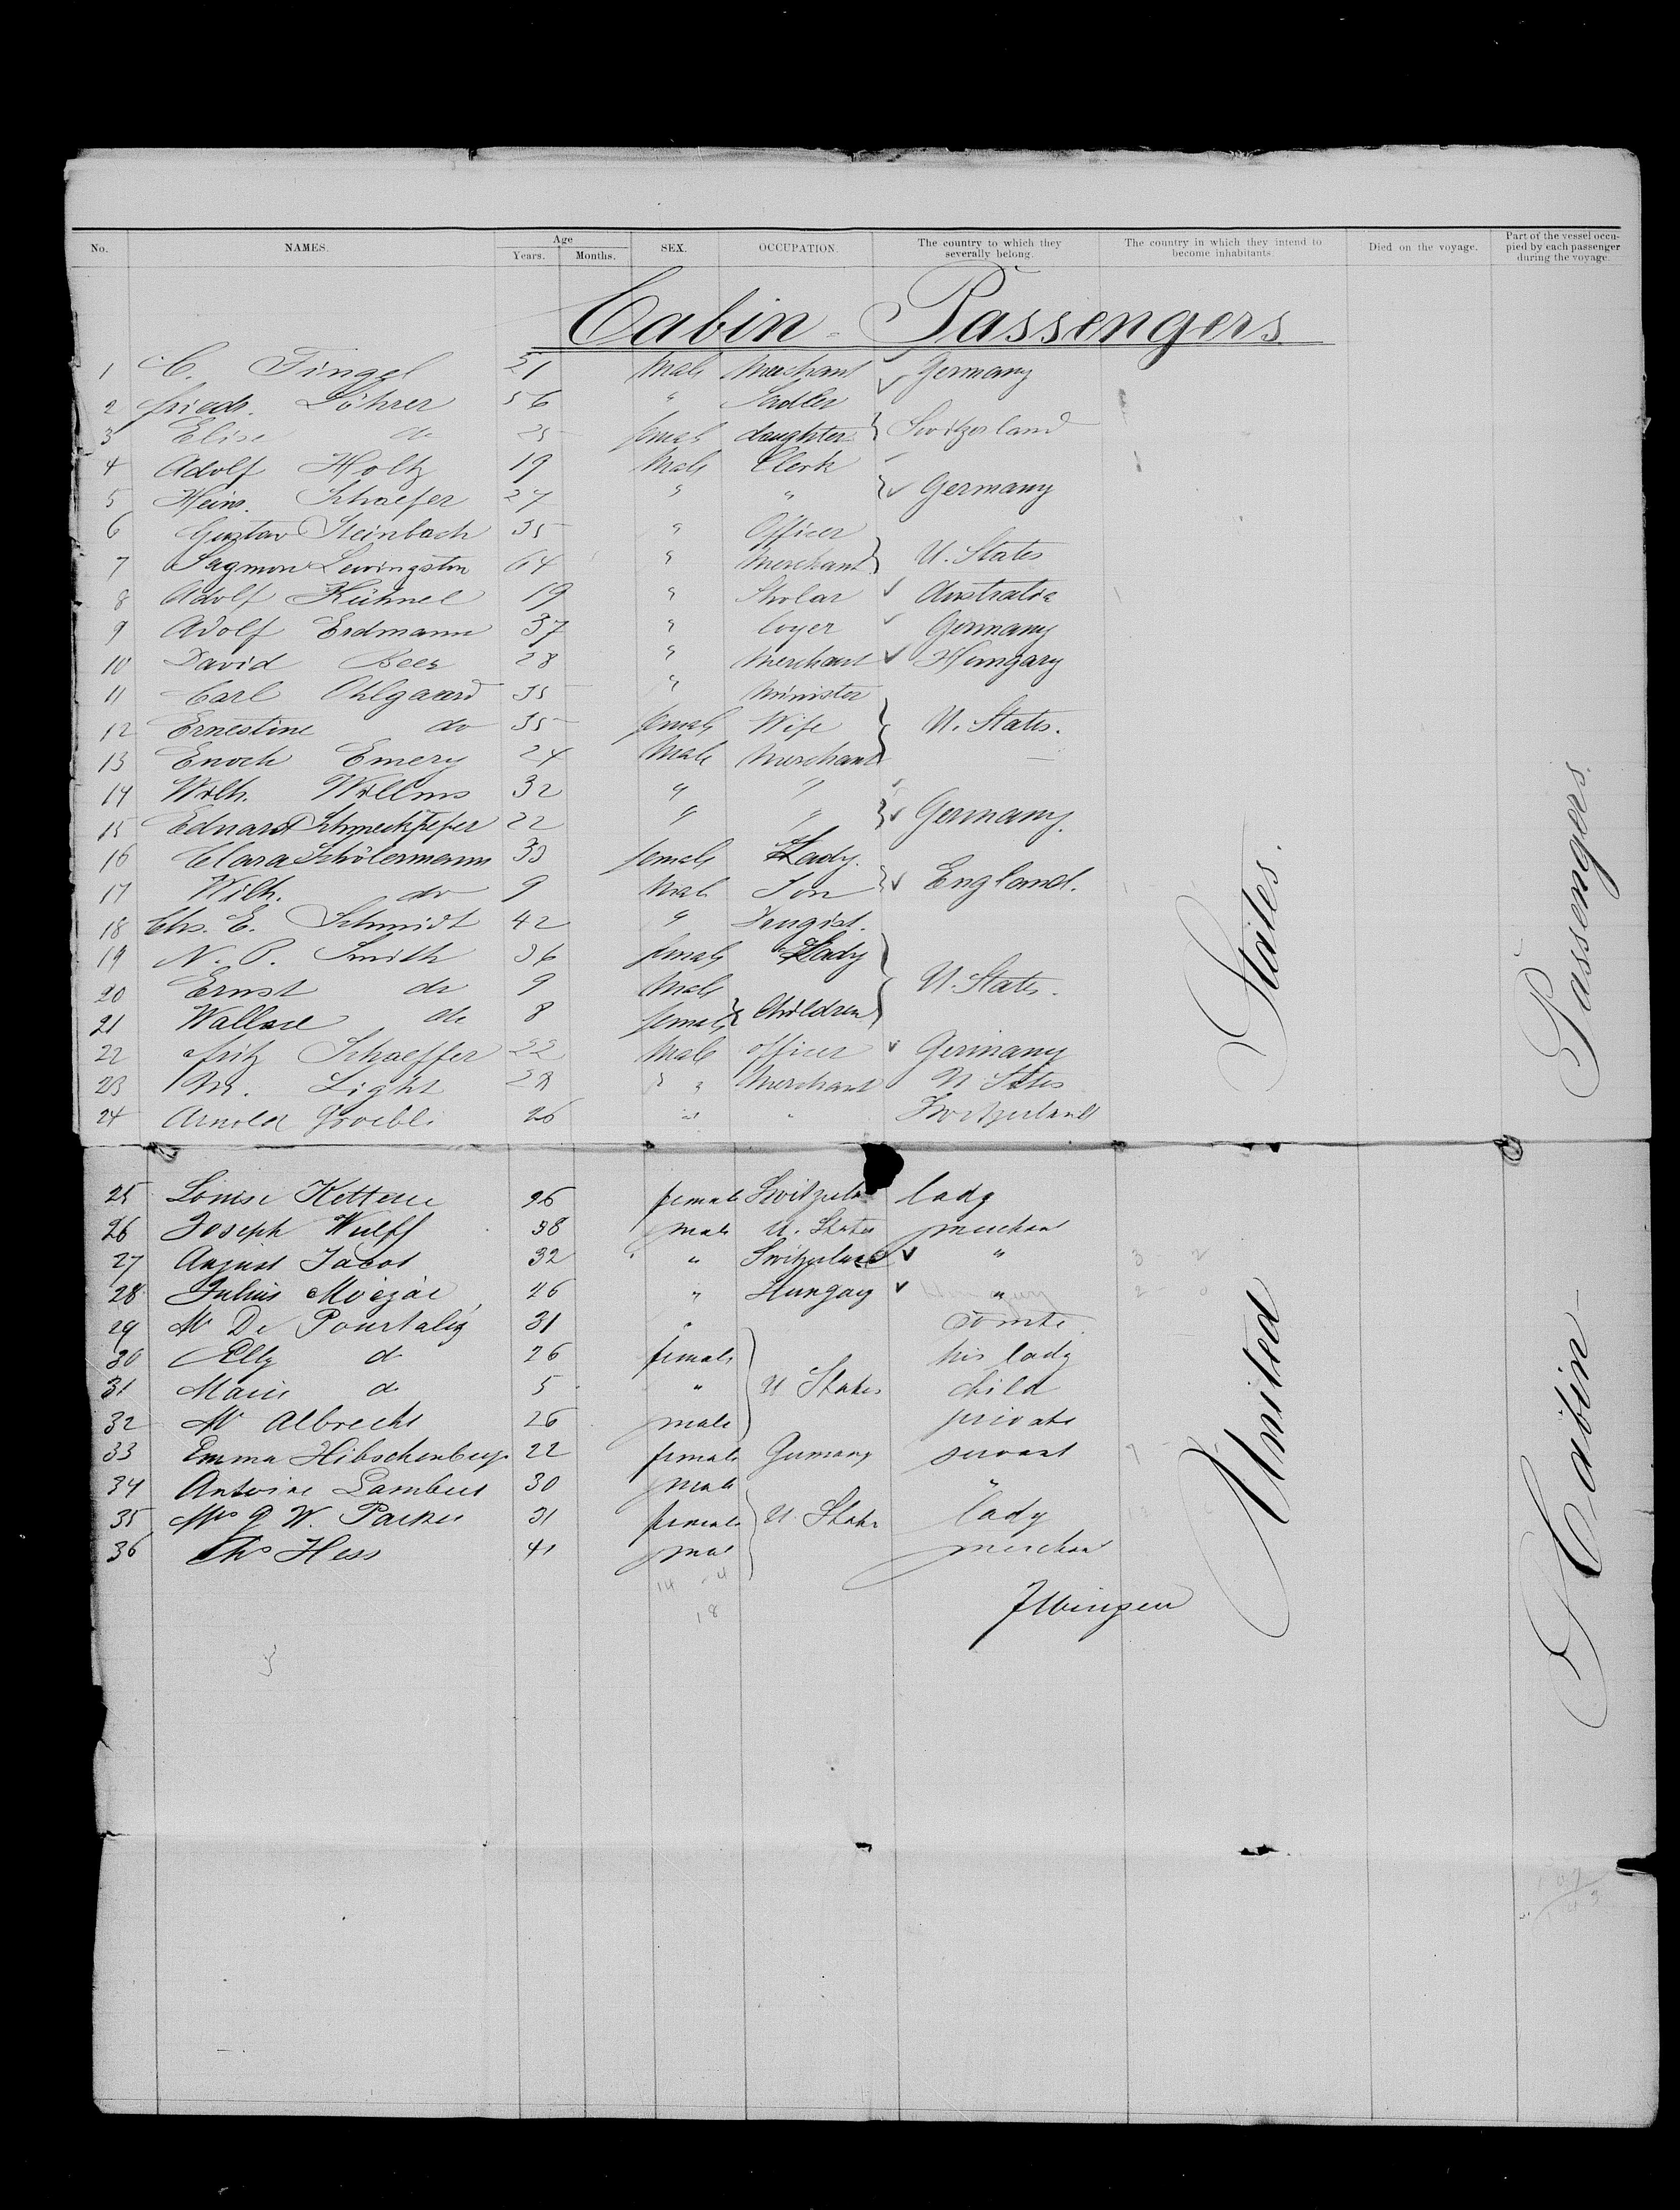 No. NAMES. Age Years. Months. SEX. OCCUPATION. The country to which they severally belong. The country in which they intend to become inhabitants. Died on the voyage. Part of the vessel occupied by each passenger during the voyage.
Cabin - Passengers
1 C. Fingel 51 Male Merchant Germany
2 friedr. Löhrer 56 " Sadler
3 Elise do 25 female daughter Switzerland
4 Adolf Holtz 19 Male Clerk
5 Heinr. Schaefer 27 " " Germany
6 Gustav Steinbach 35 " Officer
7 Lewingston 64 " Merchant U. States
8 Adolf Kühnel 19 " Skolar Australia
9 Adolf Erdmann 37 " Germany
10 David Beer 28 " Merchant Hungary
11 Carl Ohlgaard 35 " Minister
12 Ernestine do 35 female Wife U. States.
13 Enoch Emery 24 Male Merchant
14 Wilh. Willms 32 " "
15 Eduard 22 " " Germany.
16 Clara Schölermann 33 female Lady.
17 Wilh. do 9 Male Son England.
18 Chs. E. Schmidt 42 "
19 N. P. Smith 36 female Lady
20 Ernst do 9 Male U. States.
21 Wallace do 8 female Children
22 fritz Schaeffer 22 Male officer Germany
23 M. Light 28 " " Merchant U States
24 Arnold Groebli 26 " " Switzerland
25 Louise Ketterer 26 female Switzerla lady
26 Joseph Wulff 38 male U. States merchant
27 August Jacot 32 " Switzerland "
28 Julius 26 " Hungary "
29 Mr De Pourtalés 31 " comte.
30 Elly do 26 female his lady
31 Marie do 5 " U States child
32 Mr Albrecht 26 male private
33 Emma 22 female Germany servant
34 Antoine Lambert 30 male "
35 Mrs W. Parker 31 female U. States lady
36 Chs Hess 41 male merchant
14 4
18
United States.
Cabin - Passengers.